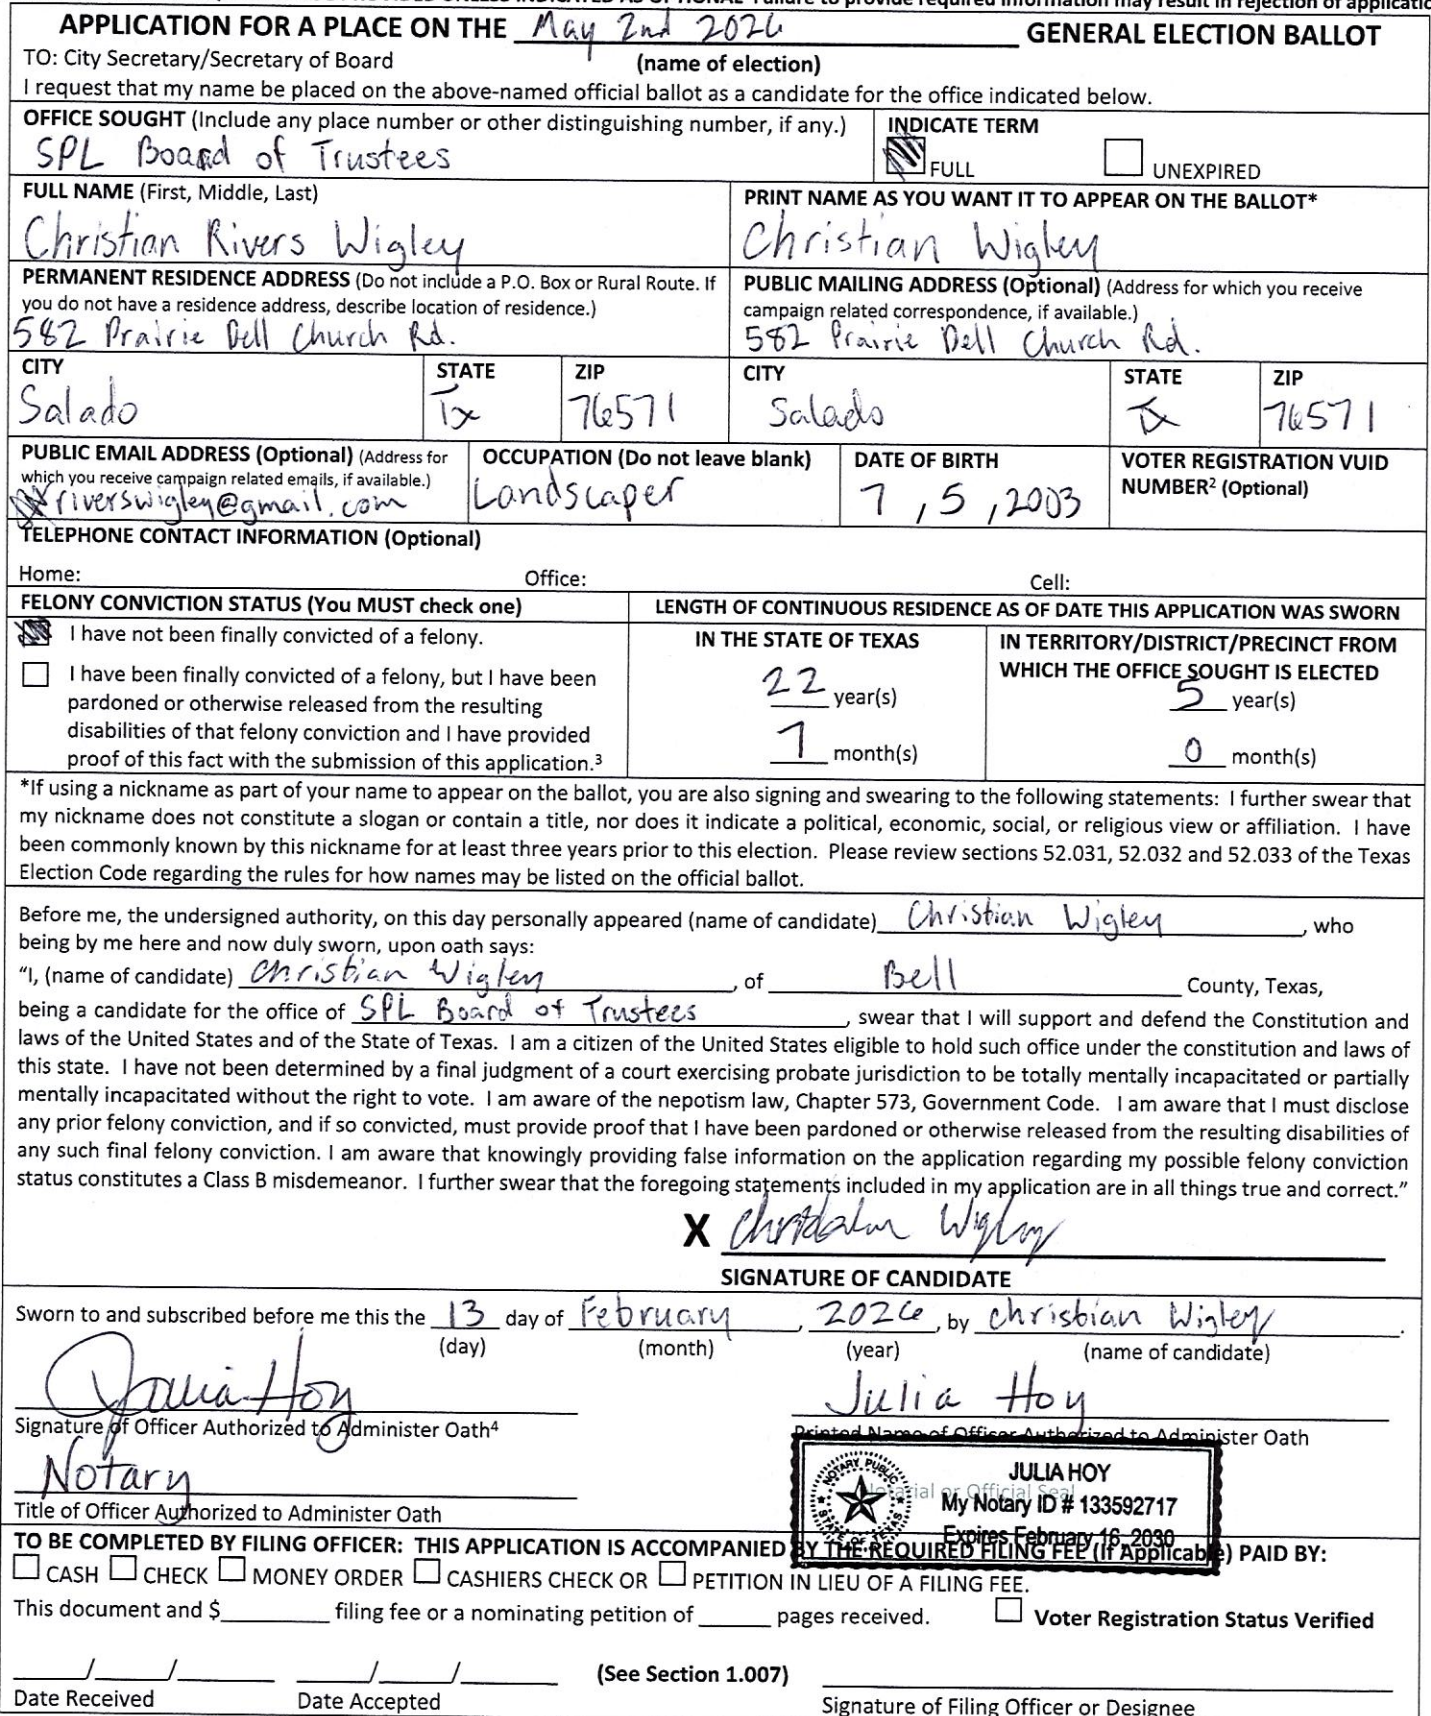 APPLICATION FOR A PLACE ON THE May 2nd 2026 GENERAL ELECTION BALLOT
TO: City Secretary/Secretary of Board (name of election)
I request that my name be placed on the above-named official ballot as a candidate for the office indicated below.
OFFICE SOUGHT (Include any place number or other distinguishing number, if any.) INDICATE TERM
SPL Board of Trustees FULL UNEXPIRED
FULL NAME (First, Middle, Last) PRINT NAME AS YOU WANT IT TO APPEAR ON THE BALLOT*
Christian Rivers Wigley Christian Wigley
PERMANENT RESIDENCE ADDRESS (Do not include a P.O. Box or Rural Route. If you do not have a residence address, describe location of residence.)
582 Prairie Dell Church Rd.
PUBLIC MAILING ADDRESS (Optional) (Address for which you receive campaign related correspondence, if available.)
582 Prairie Dell Church Rd.
CITY STATE ZIP CITY STATE ZIP
Salado Tx 76571 Salado Tx 76571
PUBLIC EMAIL ADDRESS (Optional) (Address for which you receive campaign related emails, if available.)
riverswigley@gmail.com
OCCUPATION (Do not leave blank)
Landscaper
DATE OF BIRTH
7 , 5 , 2003
VOTER REGISTRATION VUID NUMBER² (Optional)
TELEPHONE CONTACT INFORMATION (Optional)
Home: Office: Cell:
FELONY CONVICTION STATUS (You MUST check one)
I have not been finally convicted of a felony.
I have been finally convicted of a felony, but I have been
pardoned or otherwise released from the resulting
disabilities of that felony conviction and I have provided
proof of this fact with the submission of this application.³
LENGTH OF CONTINUOUS RESIDENCE AS OF DATE THIS APPLICATION WAS SWORN
IN THE STATE OF TEXAS
22 year(s)
7 month(s)
IN TERRITORY/DISTRICT/PRECINCT FROM
WHICH THE OFFICE SOUGHT IS ELECTED
5 year(s)
0 month(s)
*If using a nickname as part of your name to appear on the ballot, you are also signing and swearing to the following statements: I further swear that
my nickname does not constitute a slogan or contain a title, nor does it indicate a political, economic, social, or religious view or affiliation. I have
been commonly known by this nickname for at least three years prior to this election. Please review sections 52.031, 52.032 and 52.033 of the Texas
Election Code regarding the rules for how names may be listed on the official ballot.
Before me, the undersigned authority, on this day personally appeared (name of candidate) Christian Wigley, who
being by me here and now duly sworn, upon oath says:
"I, (name of candidate) Christian Wigley, of Bell County, Texas,
being a candidate for the office of SPL Board of Trustees, swear that I will support and defend the Constitution and
laws of the United States and of the State of Texas. I am a citizen of the United States eligible to hold such office under the constitution and laws of
this state. I have not been determined by a final judgment of a court exercising probate jurisdiction to be totally mentally incapacitated or partially
mentally incapacitated without the right to vote. I am aware of the nepotism law, Chapter 573, Government Code. I am aware that I must disclose
any prior felony conviction, and if so convicted, must provide proof that I have been pardoned or otherwise released from the resulting disabilities of
any such final felony conviction. I am aware that knowingly providing false information on the application regarding my possible felony conviction
status constitutes a Class B misdemeanor. I further swear that the foregoing statements included in my application are in all things true and correct."
X Christian Wigley
SIGNATURE OF CANDIDATE
Sworn to and subscribed before me this the 13 day of February, 2026, by Christian Wigley.
(day) (month) (year) (name of candidate)
Julia Hoy Julia Hoy
Signature of Officer Authorized to Administer Oath⁴ Printed Name of Officer Authorized to Administer Oath
Notary
Title of Officer Authorized to Administer Oath
Notarial or Official Seal
NOTARY PUBLIC
STATE OF TEXAS
JULIA HOY
My Notary ID # 133592717
Expires February 16, 2030
TO BE COMPLETED BY FILING OFFICER: THIS APPLICATION IS ACCOMPANIED BY THE REQUIRED FILING FEE (If Applicable) PAID BY:
CASH CHECK MONEY ORDER CASHIERS CHECK OR PETITION IN LIEU OF A FILING FEE.
This document and $ filing fee or a nominating petition of pages received. Voter Registration Status Verified
/ / / / (See Section 1.007)
Date Received Date Accepted Signature of Filing Officer or Designee